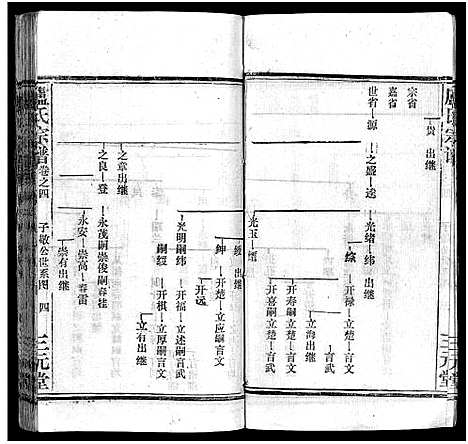 盧氏宗譜
三元堂
宗省 貴 出继
嘉省
世省 源 之盛 述 光绪 纬 出继
综 开禄 立楚 言文
立海 出继 言武
开寿 嗣立楚 言文
开喜 嗣立楚 言武
光玉 缙
绶 出继
绅 开楚 立应 嗣言文
开远
光明 嗣纬 开福 立述 嗣言武
嗣经 开棋 立厚 嗣言文
立有 出继
之章 出继
之良 登 永茂 嗣崇俊 嗣春桂
永安 崇高 春雷
崇有 出继
盧氏宗譜 卷之四 子敬公世系图 四 三元堂